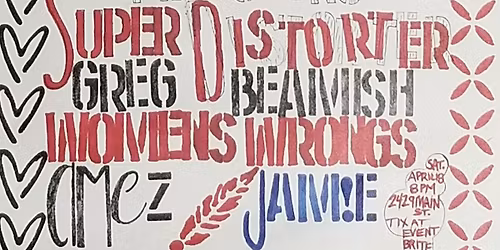 SUPER DISTORTER
GREG BEAMISH
WOMENS WRONGS
CMCZ JAM!E
SAT.
APRIL 8
8PM
2429 MAIN
ST.
TIX AT
EVENT
BRITE